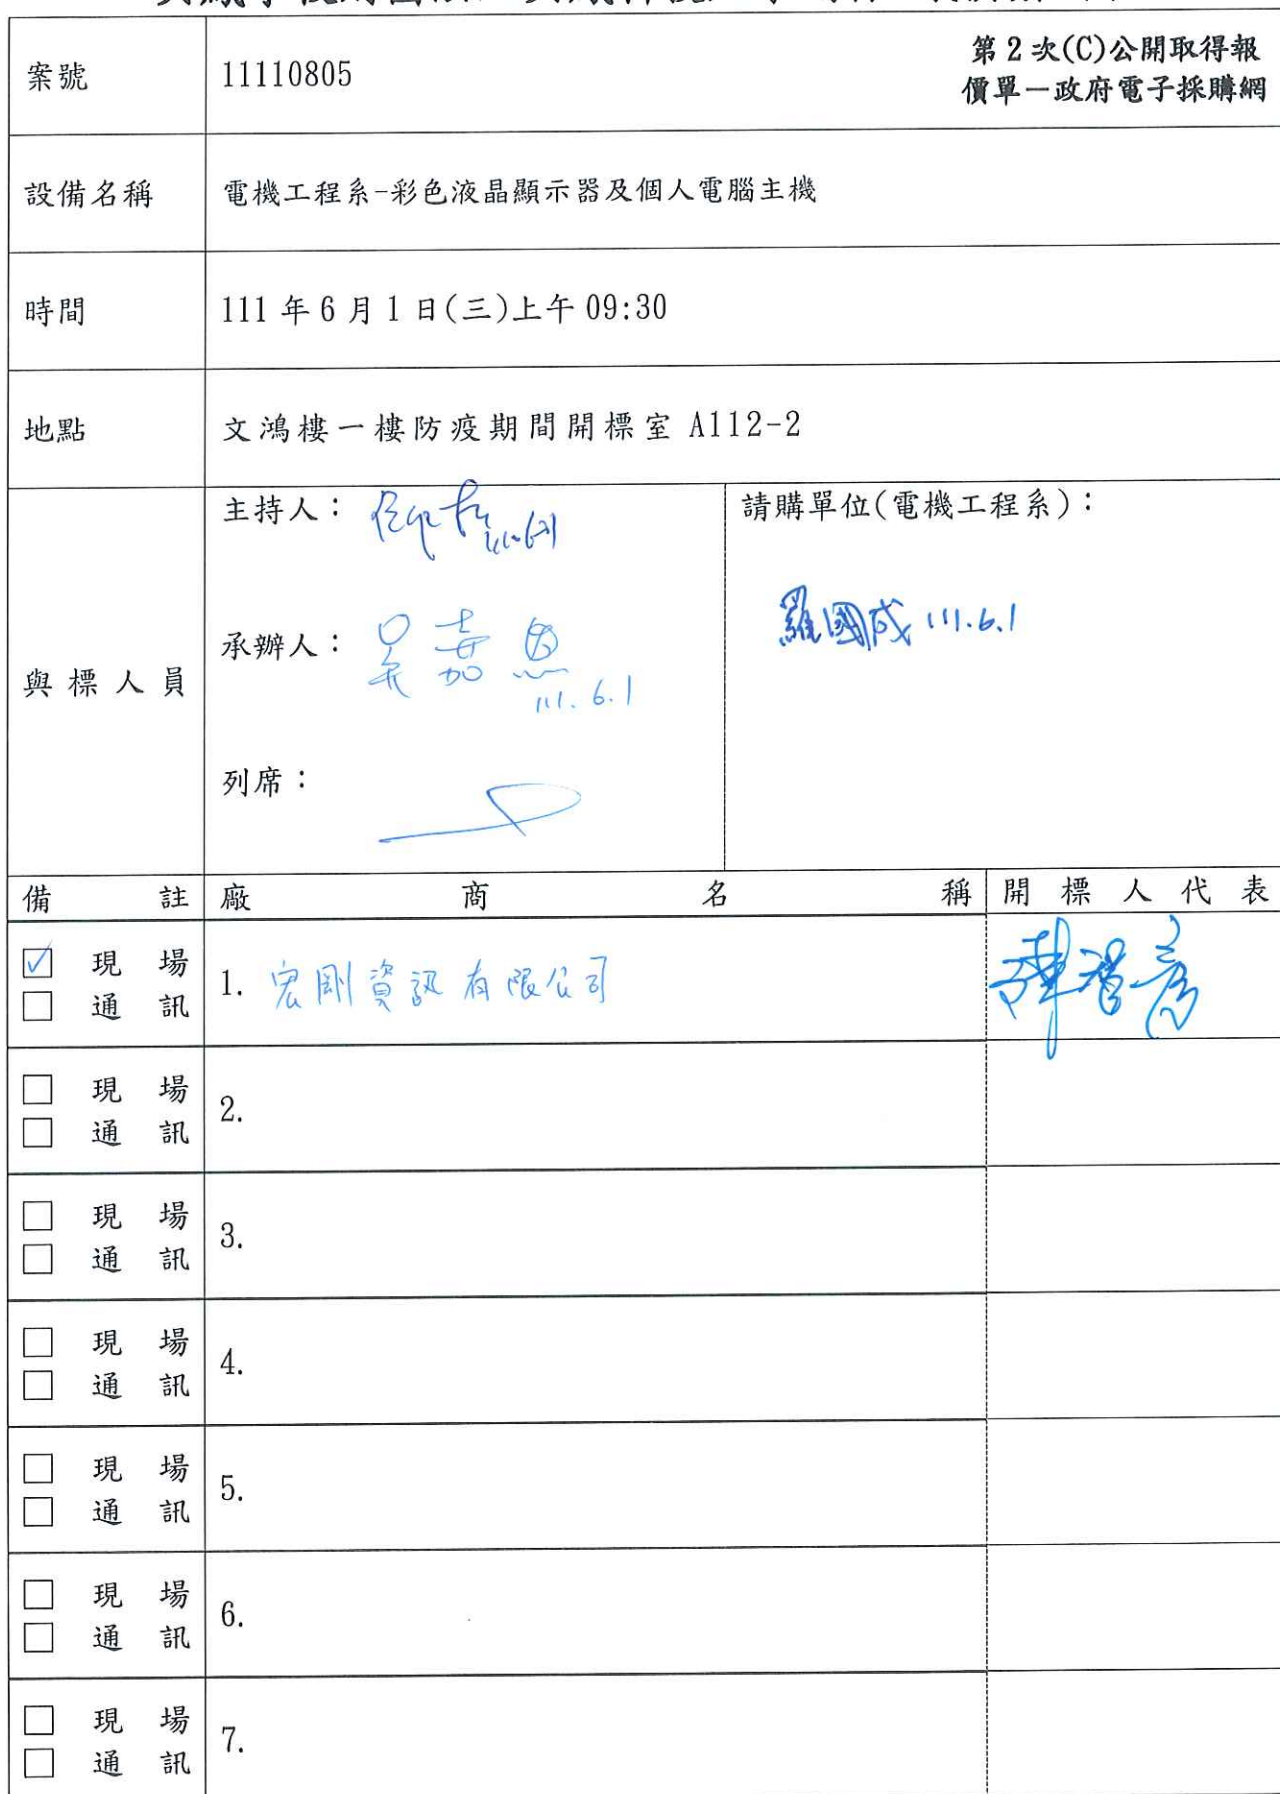 案號 11110805 第2次(C)公開取得報
價單—政府電子採購網
設備名稱 電機工程系-彩色液晶顯示器及個人電腦主機
時間 111年6月1日(三)上午09:30
地點 文鴻樓一樓防疫期間開標室 A112-2
與標人員
主持人：
承辦人：吳嘉恩
111.6.1
列席：
請購單位(電機工程系)：
羅國成 111.6.1
備註 廠商名稱 開標人代表
☑ 現場
☐ 通訊
1. 宏剛資訊有限公司
☐ 現場
☐ 通訊
2.
☐ 現場
☐ 通訊
3.
☐ 現場
☐ 通訊
4.
☐ 現場
☐ 通訊
5.
☐ 現場
☐ 通訊
6.
☐ 現場
☐ 通訊
7.